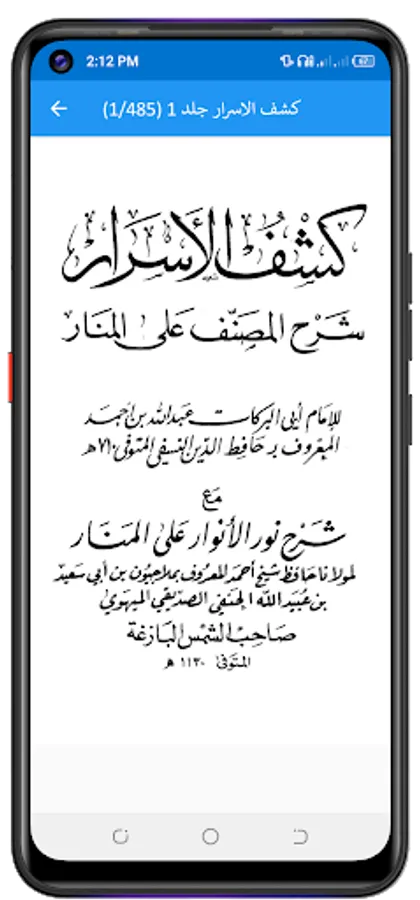 2:12 PM
كشف الاسرار جلد 1 (1/485)
كشف الأسرار
شرح المصنف على المنار
للإمام أبي البركات عبد الله بن أحمد
المعروف بحافظ الدين النسفي المتوفى ٧١٠هـ
مع
شرح نور الأنوار على المنار
لمولانا حافظ شيخ أحمد المعروف بملاجيون بن أبي سعيد
بن عبيد الله الحنفي الصديقي الميهوي
صاحب الشمس البازغة
المتوفى ١١٣٠ هـ